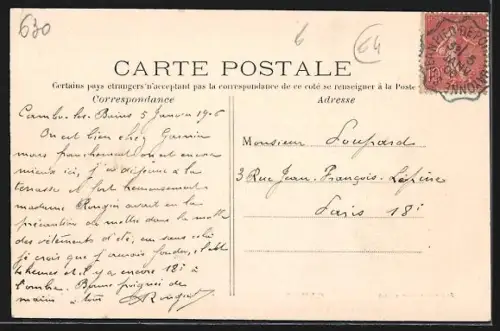 630
6
64
CARTE POSTALE
Certains pays étrangers n'acceptant pas la correspondance de ce coté se renseigner à la Poste
Correspondance
Adresse
Cambo les Bains 5 Janvier 1906
On est bien chez Garnin
mais franchement on est encore
mieux ici, j'ai déjeuné à la
terrasse et fort heureusement
madame Rouget avait eu la
précaution de mettre dans la malle
des vêtements d'été, car sans cela
je crois que j'aurais fondu, il est
heures et il y a encore 18° à
l'ombre. Bonnes poignées de
mains à tous Rouget
Monsieur Loupard
3 Rue Jean-François-Lépine
Paris 18e